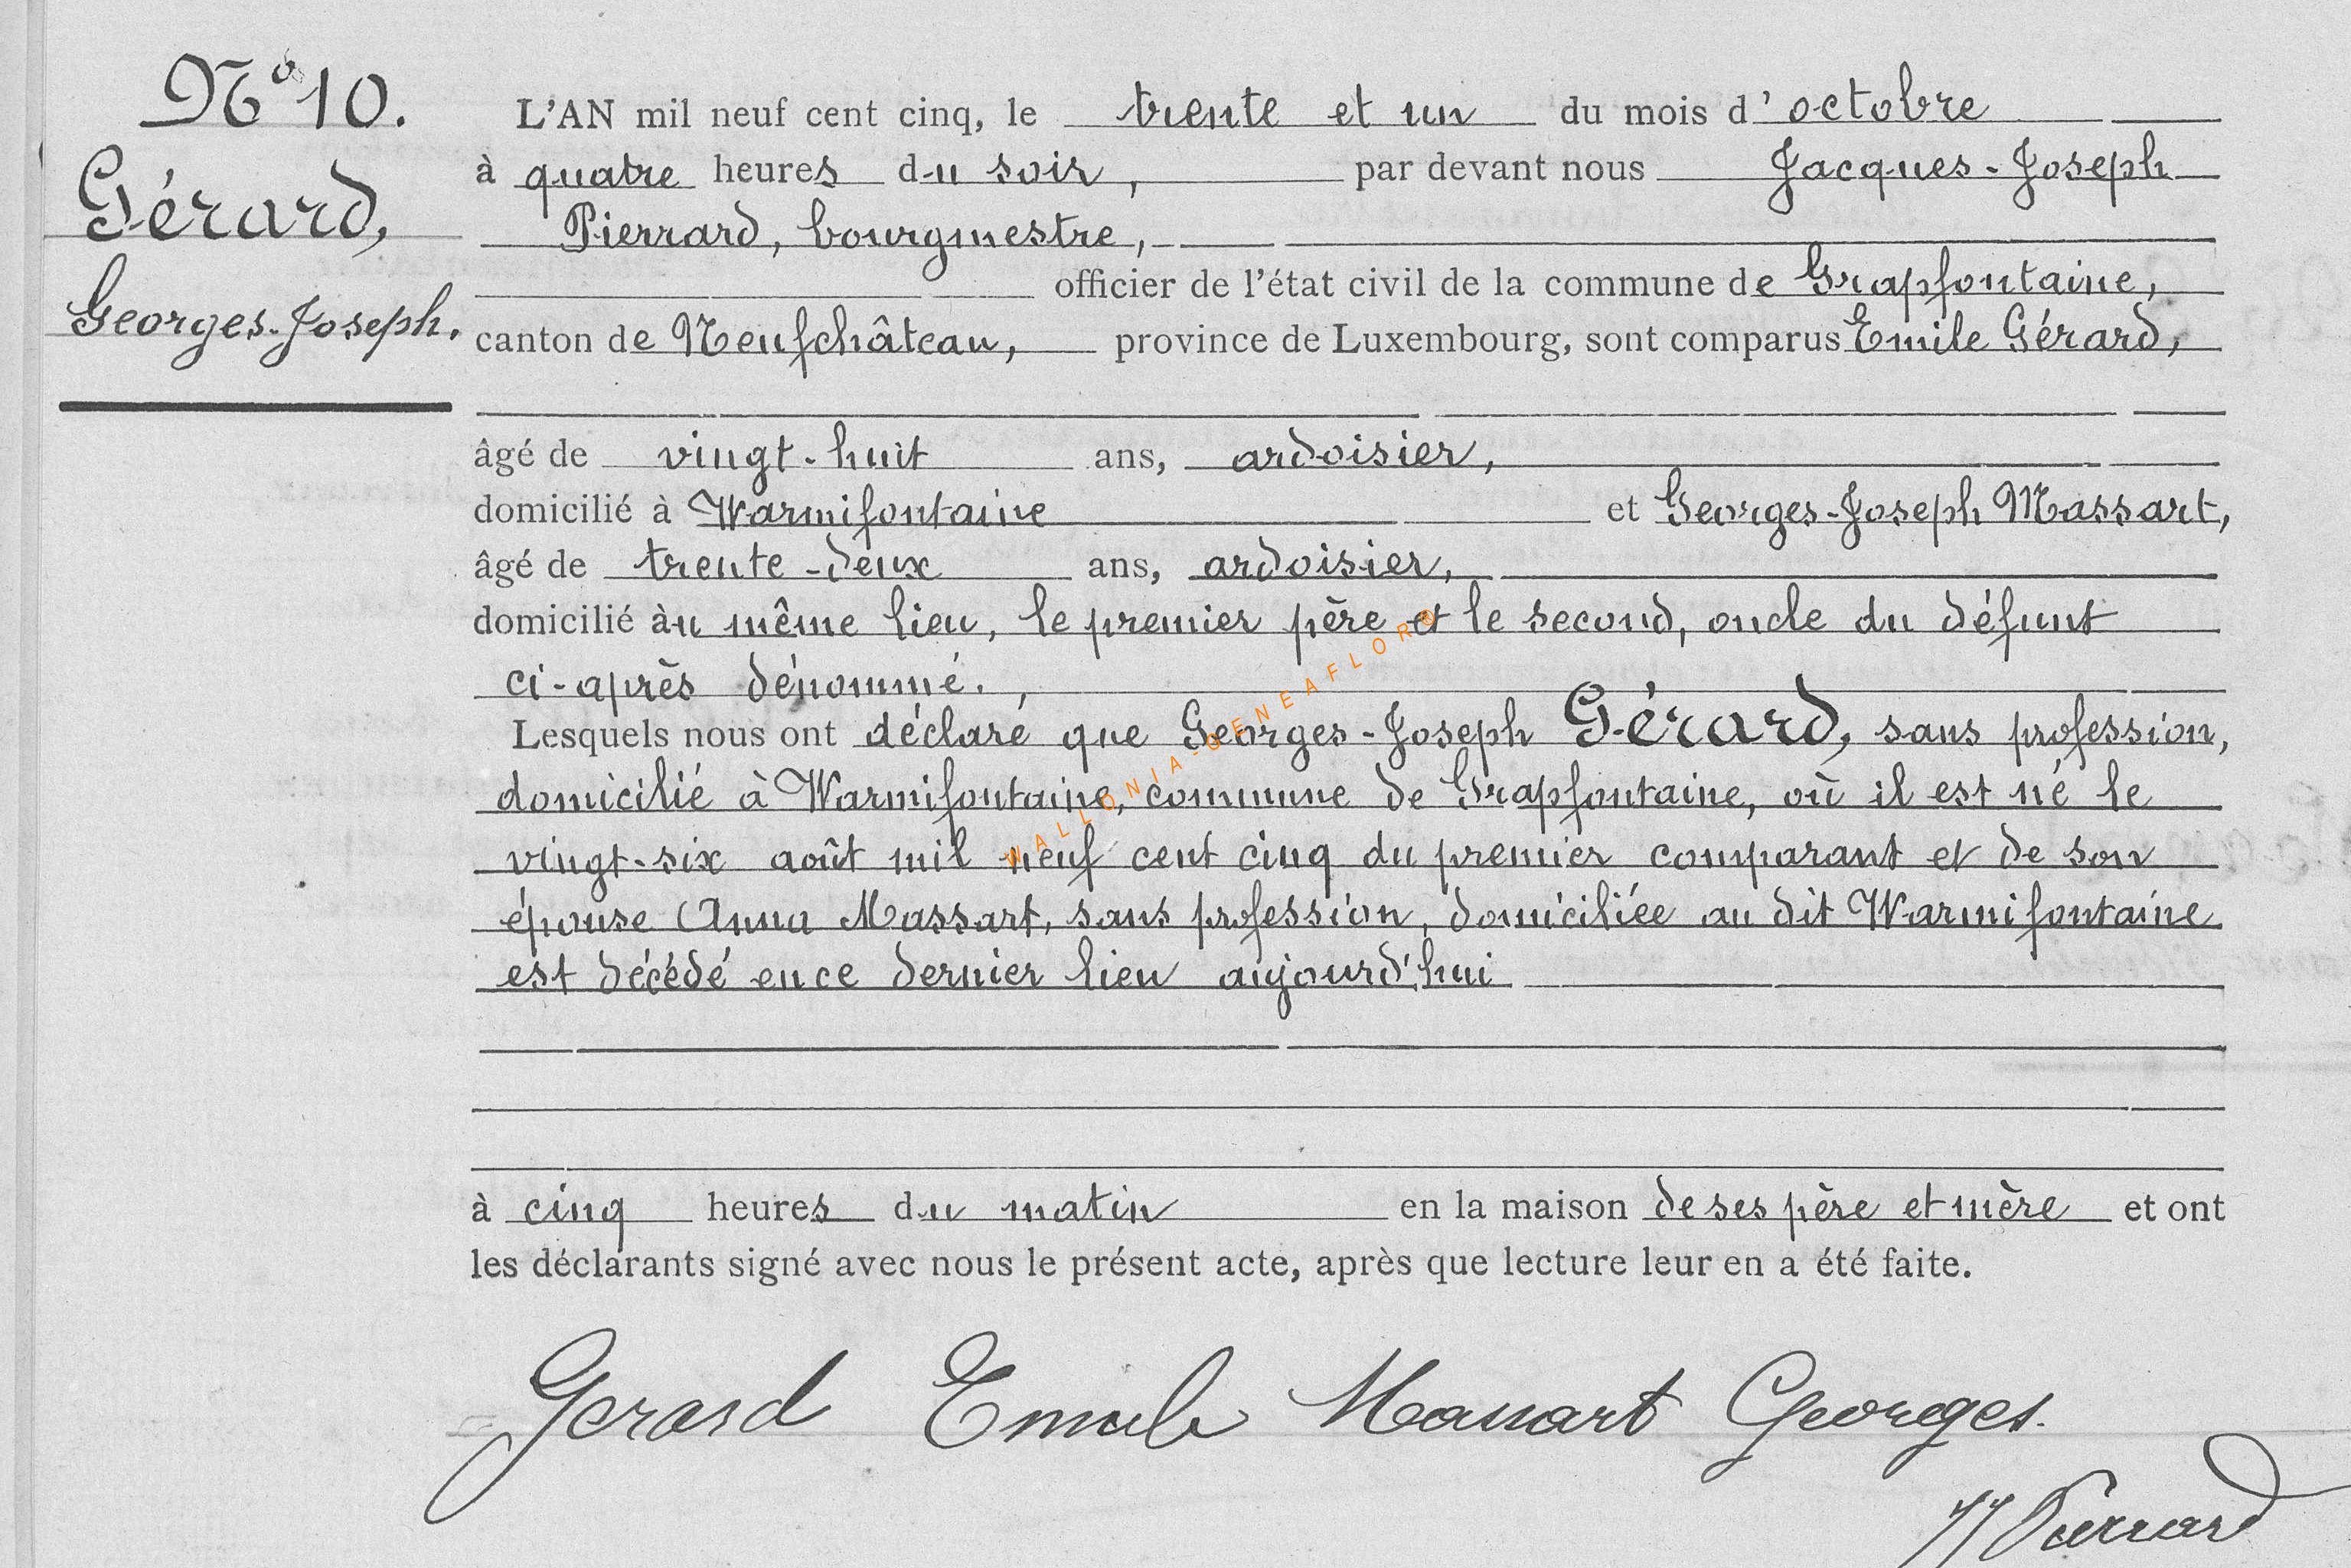 N° 10.
Gérard,
Georges-Joseph.
L'AN mil neuf cent cinq, le trente et un du mois d'octobre
à quatre heures du soir, par devant nous Jacques-Joseph
Pierrard, bourgmestre,
officier de l'état civil de la commune de Grapfontaine,
canton de Neufchâteau, province de Luxembourg, sont comparus Emile Gérard,
âgé de vingt-huit ans, ardoisier,
domicilié à Warmifontaine et Georges-Joseph Massart,
âgé de trente-deux ans, ardoisier,
domicilié àu même lieu, le premier père et le second, oncle du défunt
ci-après dénommé.
Lesquels nous ont déclaré que Georges-Joseph Gérard, sans profession,
domicilié à Warmifontaine, commune de Grapfontaine, où il est né le
vingt-six août mil neuf cent cinq du premier comparant et de son
épouse Anna Massart, sans profession, domiciliée au dit Warmifontaine
est décédé en ce dernier lieu aujourd'hui
à cinq heures du matin en la maison de ses père et mère et ont
les déclarants signé avec nous le présent acte, après que lecture leur en a été faite.
Gerard Emile Massart Georges.
JJ Pierrard
WALLONIA-GENEAFLOR©